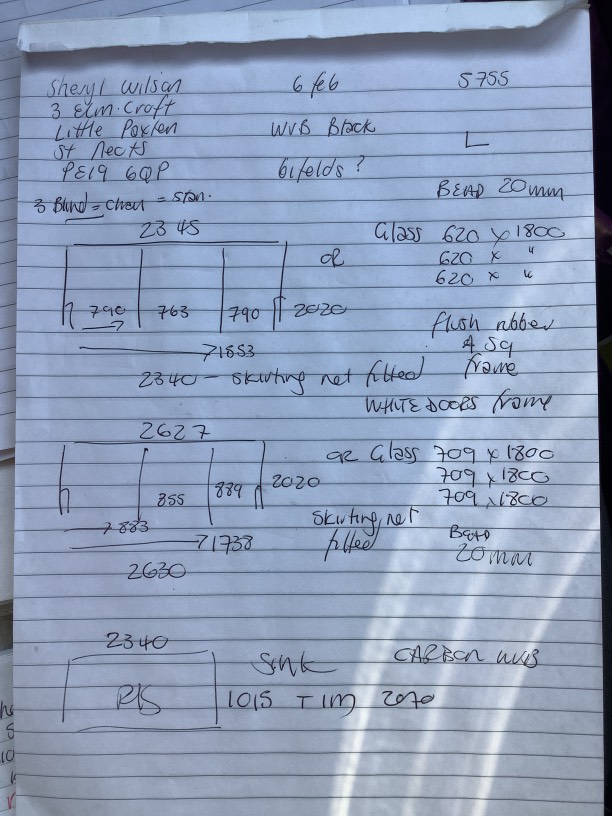 Sheryl Wilson 6 feb 5755
3 Elm Croft
Little Paxton WVB Black L
St Neots
PE19 6QP bifolds ?
BEAD 20mm
3 Blind = = Stan.
2345 Glass 620 x 1800
OR 620 x "
620 x "
790 763 790 2020
flush rubber
→1853 & SQ
2340 - skirting not fitted frame
WHITE DOORS frame
2627
OR Glass 709 x 1800
709 x 1800
855 889 2020 709 x 1800
→ 883 Skirting not
→1738 fitted BEAD
20mm
2630
2340 Sink CARBON WVB
P/S 1015 - 1m 2070